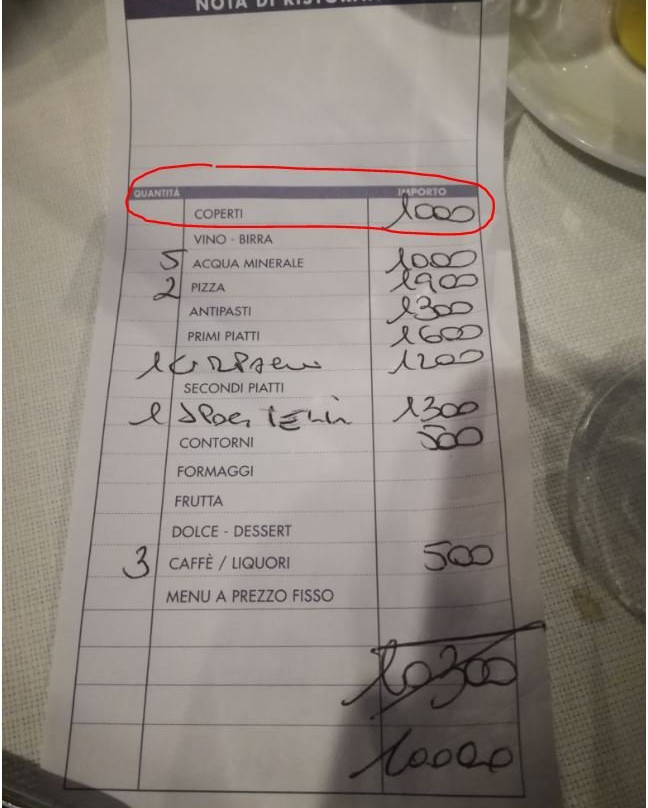 NOTA DI
QUANTITÀ IMPORTO
COPERTI 1000
VINO - BIRRA
5 ACQUA MINERALE 1000
2 PIZZA 1900
ANTIPASTI 1300
PRIMI PIATTI 1600
1 1200
SECONDI PIATTI
1 1300
CONTORNI 500
FORMAGGI
FRUTTA
DOLCE - DESSERT
3 CAFFÈ / LIQUORI 500
MENU A PREZZO FISSO
10300
10000